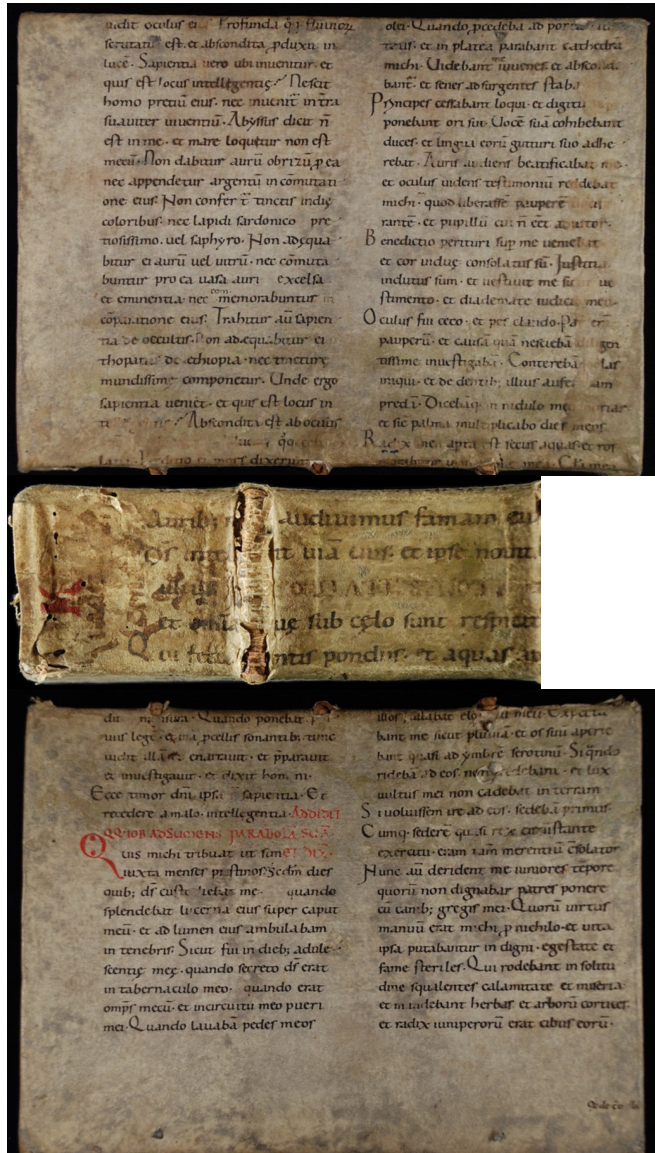 uidit oculus ei profunda q̄ fluuiorū
scrutatus est. et abscondita pduxit in
lucē. Sapientia uero ubi inuenitur. et
quis est locus intellegentię. Nescit
homo pretiū eius. nec inuenit̄ in t̄ra
suauiter uiuentiū. Abyssus dicit n̄
est in me. et mare loquetur non est
mecū. Non dabitur aurū obrizū p ea
nec appendetur argentū in cōmutati
one eius. Non confert̄ tinctis indię
coloribus. nec lapidi sardonico pre
tiosissimo. uel saphyro. Non adęqua
bitur ei aurū uel uitrū. nec cōmuta
buntur pro ea uasa auri excelsa
et eminentia nec com memorabuntur in
cōparatione eius. Trahitur au sapien
tia de occultis. Non adęquabitur ei
thopazius de ethiopia. nec tincturę
mundissimę componetur. Unde ergo
sapientia ueniet. et quis est locus in
Abscondita est ab oculis
q̄q
et mors dixerunt
olei. Quando pcedebā ad por
tęus. et in platea parabant cathedrā
michi. Uidebant me iuuenes et absco
bant. et senes adsurgentes staba
Principes cessabant loqui. et digitū
ponebant ori suo. Uocē suā cohibebant
duces. et lingua eorū gutturi suo adhe
rebat. Auris audiens beatificabat me.
et oculus uidens testimoniū reddebat
michi. quod liberasse pauperē
rantē. et pupillū cui n̄ eēt adiutor.
Benedictio perituri sup me ueniebat
et cor uiduę consolatus sū. Iustitia
indutus sum. et uestiuit me sic ue
stimento. et diademate iudicio meo.
Oculus fui ceco. et pes claudo. Pater erā
pauperū. et causā quā nesciebā
tissime inuestigabā. Conterebā
iniqui. et de dentib; illius aufe am
predā. Dicebaq. in nidulo meo
et sic palma multiplicabo dies meos
Radix mea apta est secus aquas. et ros
Aurib; audiuimus famam eius
D̄s inte it uiā eius. et ipse nouit
et omnia quę sub cęlo sunt respicit
Qui fecit uentis pondus. et aquas
mensura. Quando ponebat
uiis legē. et uiā pcellis sonantib; tunc
uidit illā et enarrauit. et pparauit
et inuestigauit. et dixit homini.
Ecce timor dn̄i ipsa ē sapientia. Et
recedere a malo. intellegentia. ADDIDIT
QUOQ IOB ADSUMENS PARABOLĀ SUĀ
ET DIX.
Quis michi tribuat ut sim
iuxta menses pristinos. Scdm dies
quib; d̄s custodiebat me. quando
splendebat lucerna eius super caput
meū. et ad lumen eius ambulabam
in tenebris. Sicut fui in dieb; adule
scentię męę. quando secreto d̄s erat
in tabernaculo meo. quando erat
omps mecū. et in circuitu meo pueri
mei. Quando lauabā pedes meos
illos stillabat eloquiū meū. Expecta
bant me sicut pluuiā. et os suū aperie
bant quasi ad ymbrē serotinū. Siqndo
ridebā ad eos non credebant. et lux
uultus mei non cadebat in terram
Si uoluissem ire ad eos. sedebā primus.
Cumq. sederē quasi rex circūstante
exercitu. eram tam̄ merentiū cōsolator
Nunc au derident me iuniores tēpore
quorū non dignabar patres ponere
cū canib; gregis mei. Quorū uirtus
manuū erat michi p nichilo. et uita
ipsa putabantur indigni. egestate et
fame steriles. Qui rodebant in solitu
dine squalentes calamitate et miseria
et mandebant herbas et arborū cortices
et radix iuniperorū erat cibus eorū.